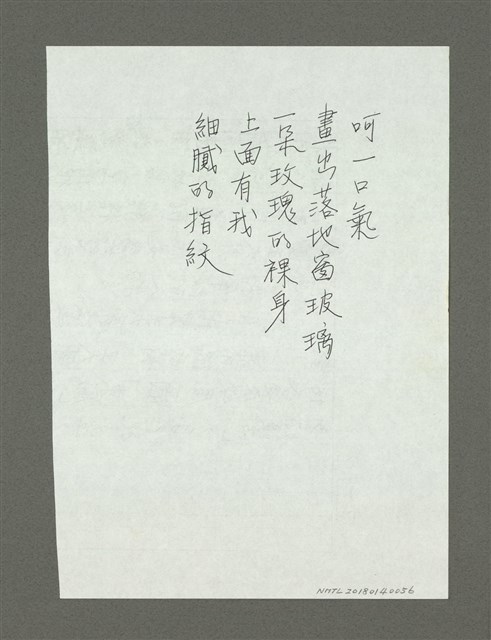 呵一口氣
畫出落地窗玻璃
一朵玫瑰的裸身
上面有我
細膩的指紋
NMTL20180140056